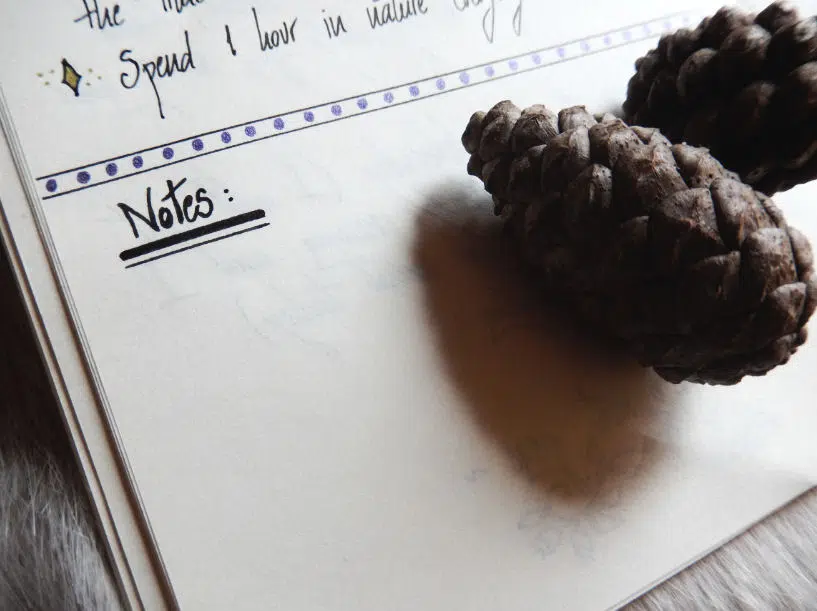 the
Spend 1 hour in nature
Notes: